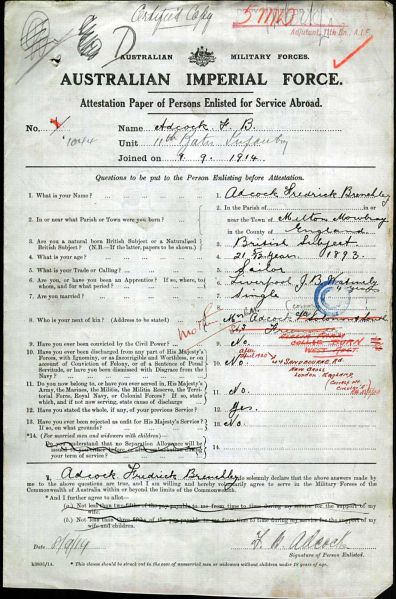 Certified Copy
5 MRO
Adjutant, 11th Bn., A.I.F.
D
AUSTRALIAN MILITARY FORCES.
AUSTRALIAN IMPERIAL FORCE.
Attestation Paper of Persons Enlisted for Service Abroad.
No. Name Adcock F. B.
Unit 11th Batn Infantry
Joined on 9. 9. 1914.
Questions to be put to the Person Enlisting before Attestation.
1. What is your Name? 1. Adcock Fredrick Brenchley
2. In or near what Parish or Town were you born? 2. In the Parish of
near the Town of Melton Mowbray
in the County of England
3. Are you a natural born British Subject or a Naturalized British Subject? (N.B.—If the latter, papers to be shown.) 3. British Subject
4. What is your age? 4. 21 1893
5. What is your Trade or Calling? 5. Sailor
6. Are you, or have you been an Apprentice? If so, where, to whom, and for what period? 6. Liverpool J.B.
7. Are you married? 7. Single
8. Who is your next of kin? (Address to be stated) 8. Adcock
mother
9. Have you ever been convicted by the Civil Power? 9. No
10. Have you ever been discharged from any part of His Majesty's Forces, with Ignominy, or as Incorrigible and Worthless, or on account of Conviction of Felony, or of a Sentence of Penal Servitude, or have you been dismissed with Disgrace from the Navy? 10. No
44 Sandbourne Rd.
London England
11. Do you now belong to, or have you ever served in, His Majesty's Army, the Marines, the Militia, the Militia Reserve, the Territorial Force, Royal Navy, or Colonial Forces? If so, state which, and if not now serving, state cause of discharge 11. No
12. Have you stated the whole, if any, of your previous Service? 12. Yes.
13. Have you ever been rejected as unfit for His Majesty's Service? If so, on what grounds? 13. No
*14. (For married men and widowers with children)—
Do you understand that no Separation Allowance will be issued
your term of service? 14.
I, Adcock Fredrick Brenchley do solemnly declare that the above answers made by
me to the above questions are true, and I am willing and hereby voluntarily agree to serve in the Military Forces of the
Commonwealth of Australia within or beyond the limits of the Commonwealth.
*And I further agree to allot—
(a.) Not less than two-fifths of the pay payable to me from time to time during my service for the support of my
wife.
(b.) Not less than three-fifths of the pay payable to me from time to time during my service for the support of my
wife and children.
Date 8/9/14 F. B. Adcock
Signature of Person Enlisted.
* This clause should be struck out in the case of unmarried men or widowers without children under 18 years of age.